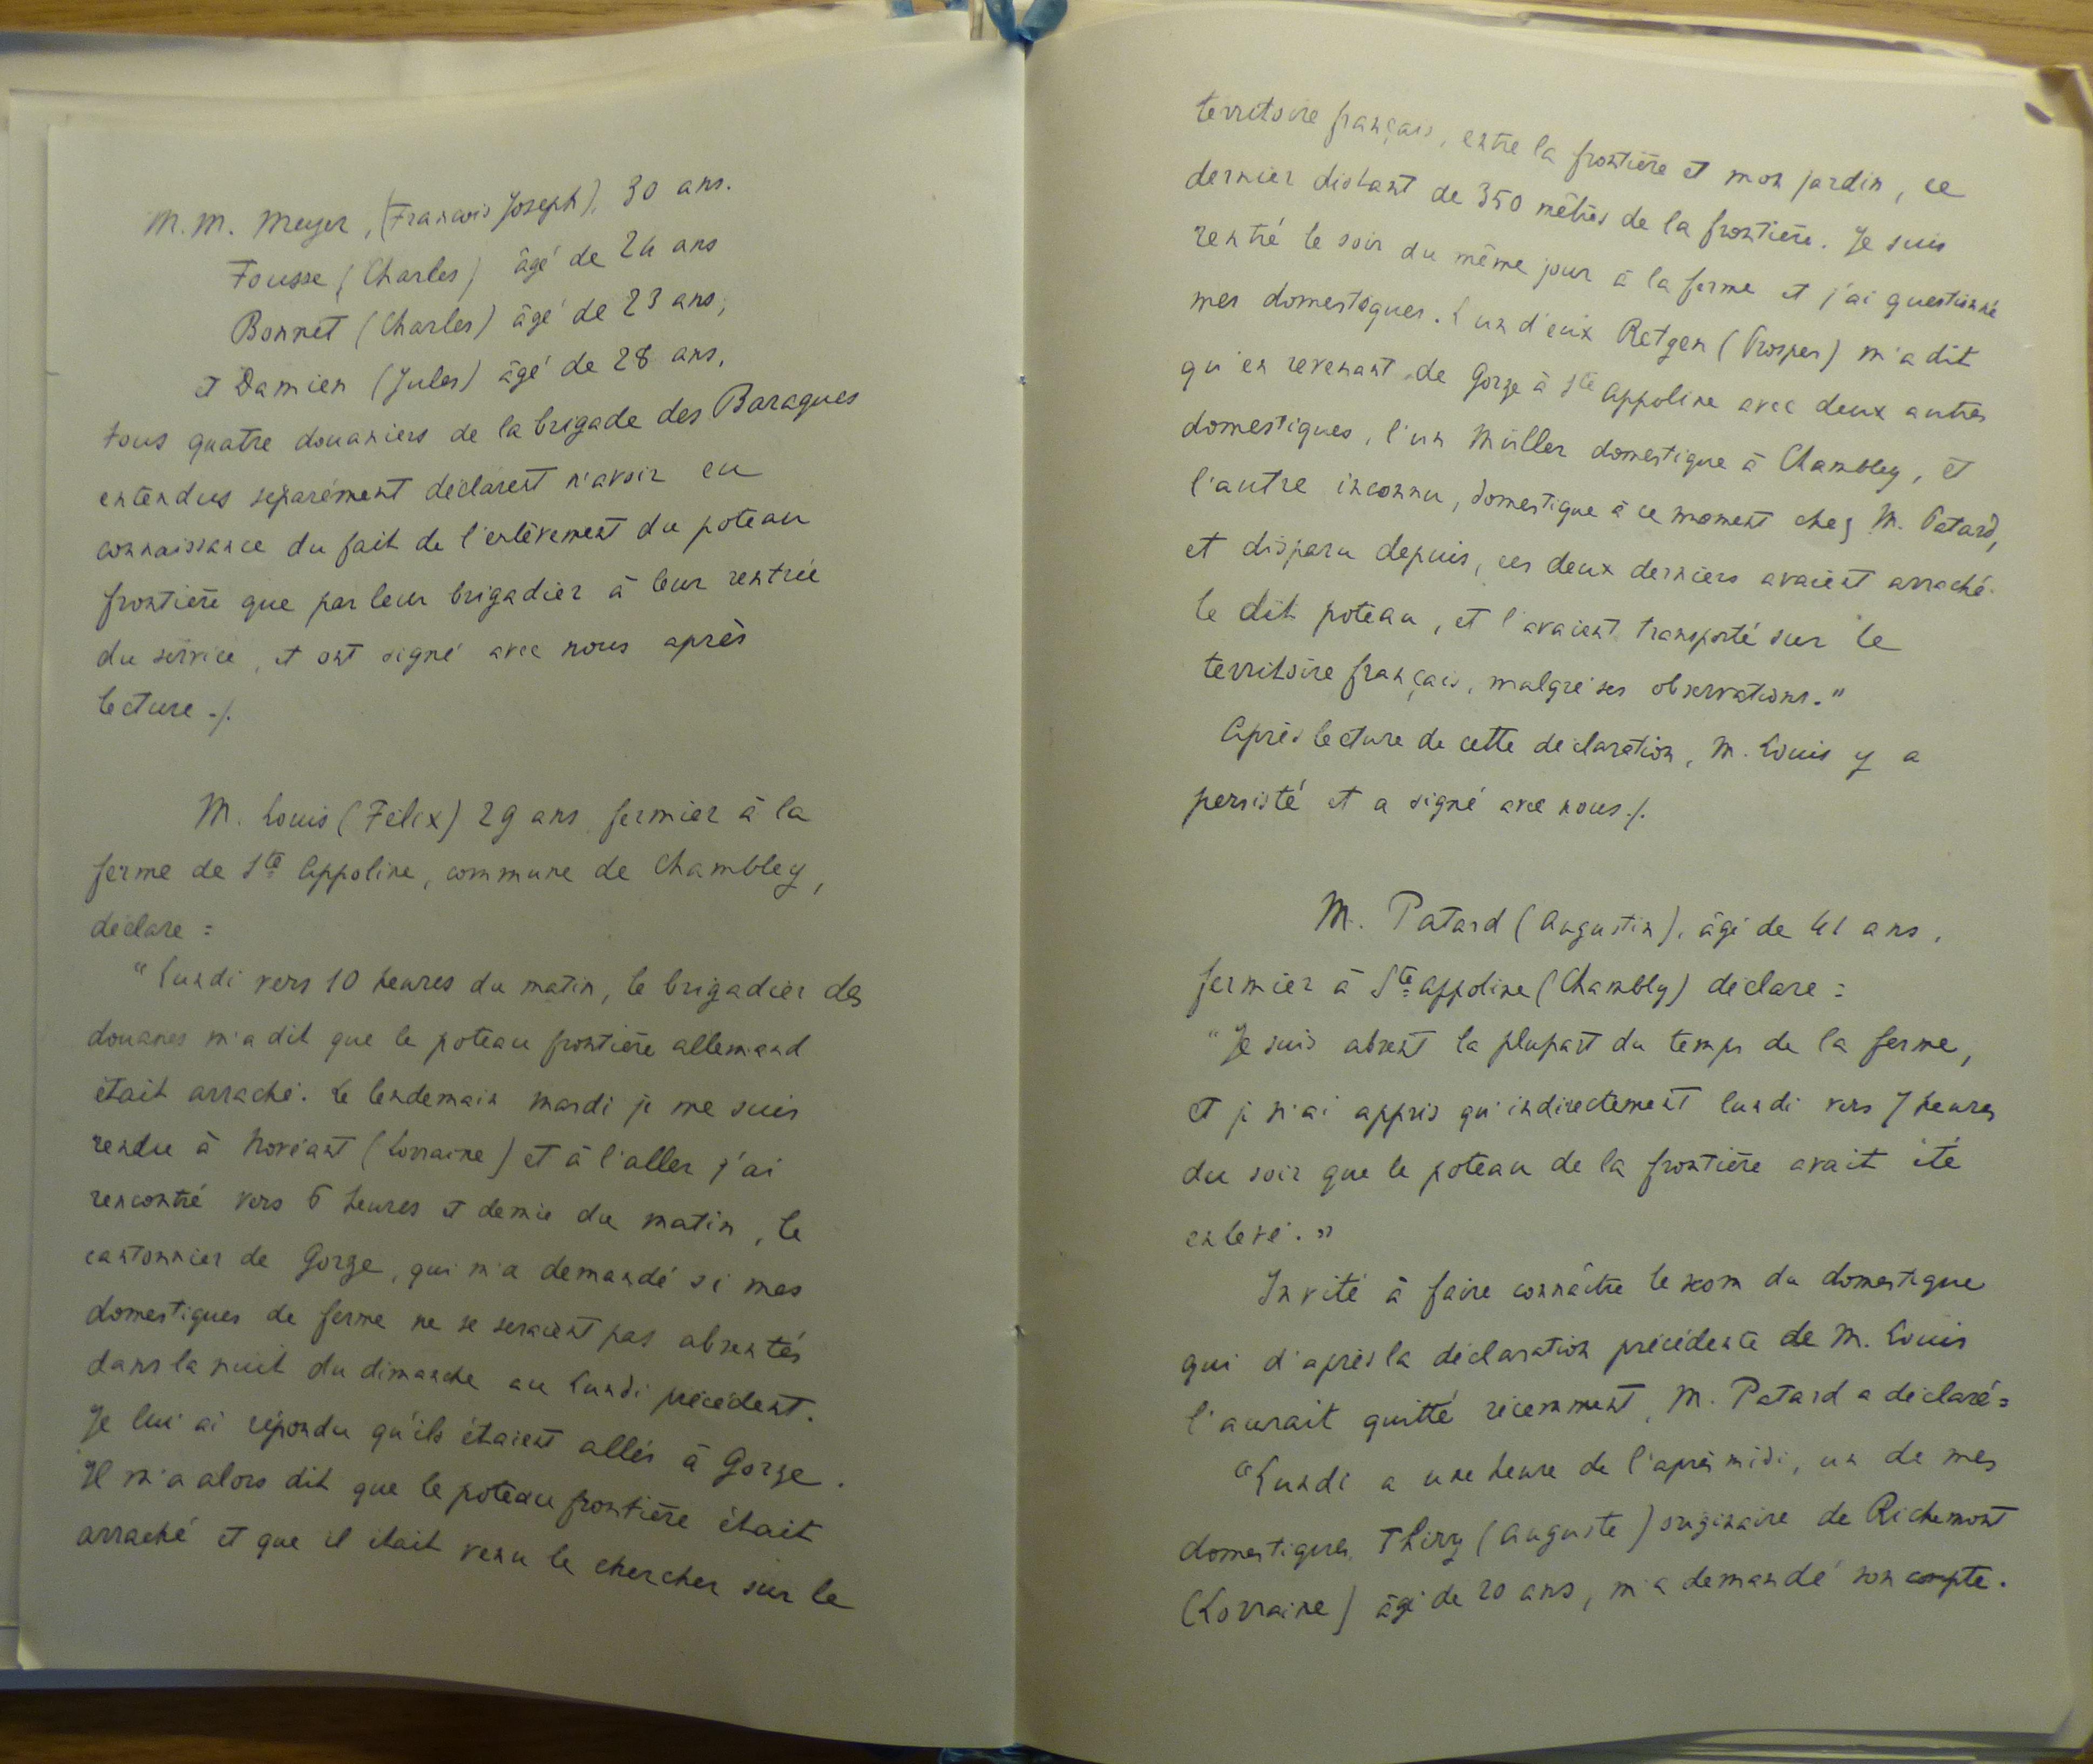 M. M. Meyer, (Francois Joseph), 30 ans.
Fousse (Charles) âgé de 24 ans
Bonnet (Charles) âgé de 23 ans,
et Damien (Jules) âgé de 28 ans,
tous quatre douaniers de la brigade des Baraques
entendus séparément déclarent n'avoir eu
connaissance du fait de l'enlèvement du poteau
frontière que par leur brigadier à leur rentrée
du service, et ont signé avec nous après
lecture ./.
M. Louis (Félix) 29 ans fermier à la
ferme de Ste Appoline, commune de Chambley,
déclare :
"Lundi vers 10 heures du matin, le brigadier des
douanes m'a dit que le poteau frontière allemand
était arraché. Le lendemain mardi je me suis
rendu à Novéant (Lorraine) et à l'aller j'ai
rencontré vers 6 heures et demie du matin, le
cantonnier de Gorze, qui m'a demandé si mes
domestiques de ferme ne se seraient pas absentés
dans la nuit du dimanche au lundi précédent.
Je lui ai répondu qu'ils étaient allés à Gorze.
Il m'a alors dit que le poteau frontière était
arraché et que il était venu le chercher sur le
territoire français, entre la frontière et mon jardin, ce
dernier distant de 350 mètres de la frontière. Je suis
rentré le soir du même jour à la ferme et j'ai questionné
mes domestiques. L'un d'eux Retgen (Prosper) m'a dit
qu'en revenant de Gorze à Ste Appoline avec deux autres
domestiques, l'un Müller domestique à Chambley, et
l'autre inconnu, domestique à ce moment chez M. Patard,
et disparu depuis, ces deux derniers avaient arraché
le dit poteau, et l'avaient transporté sur le
territoire français, malgré ses observations."
Après lecture de cette déclaration, M. Louis y a
persisté et a signé avec nous ./.
M. Patard (Augustin), âgé de 41 ans,
fermier à Ste Appoline (Chambly) déclare :
"Je suis absent la plupart du temps de la ferme,
et je n'ai appris qu'indirectement lundi vers 7 heures
du soir que le poteau de la frontière avait été
enlevé."
Invité à faire connaître le nom du domestique
qui d'après la déclaration précédente de M. Louis
l'aurait quitté récemment, M. Patard a déclaré :
"Lundi a une heure de l'après midi, un de mes
domestiques, Thiry (Auguste) originaire de Richemont
(Lorraine) âgé de 20 ans, m'a demandé son compte.